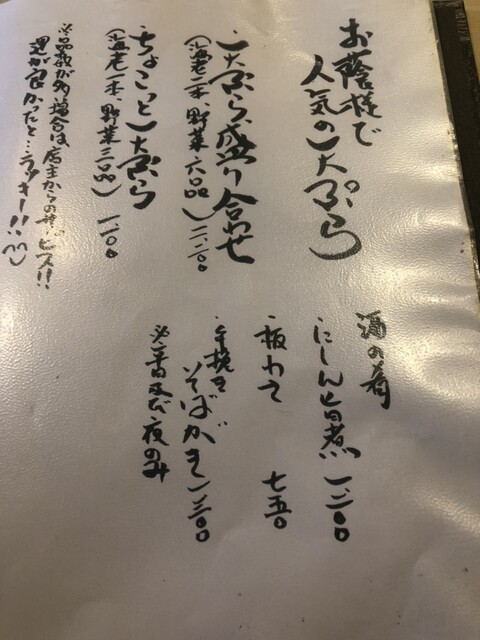 お蔭様で
人気の天ぷら
天ぷら盛り合わせ
(海老二本、野菜六品) 二、二〇〇
ちょこっと天ぷら
(海老一本、野菜三品) 一、一〇〇
※品数が多い場合は店主からのサービス!!
運が良かったと…ラッキー!!
酒の肴
にしん旨煮 一、二〇〇
板わさ 七五〇
手挽きそばがき 一、三〇〇
※平日及び夜のみ